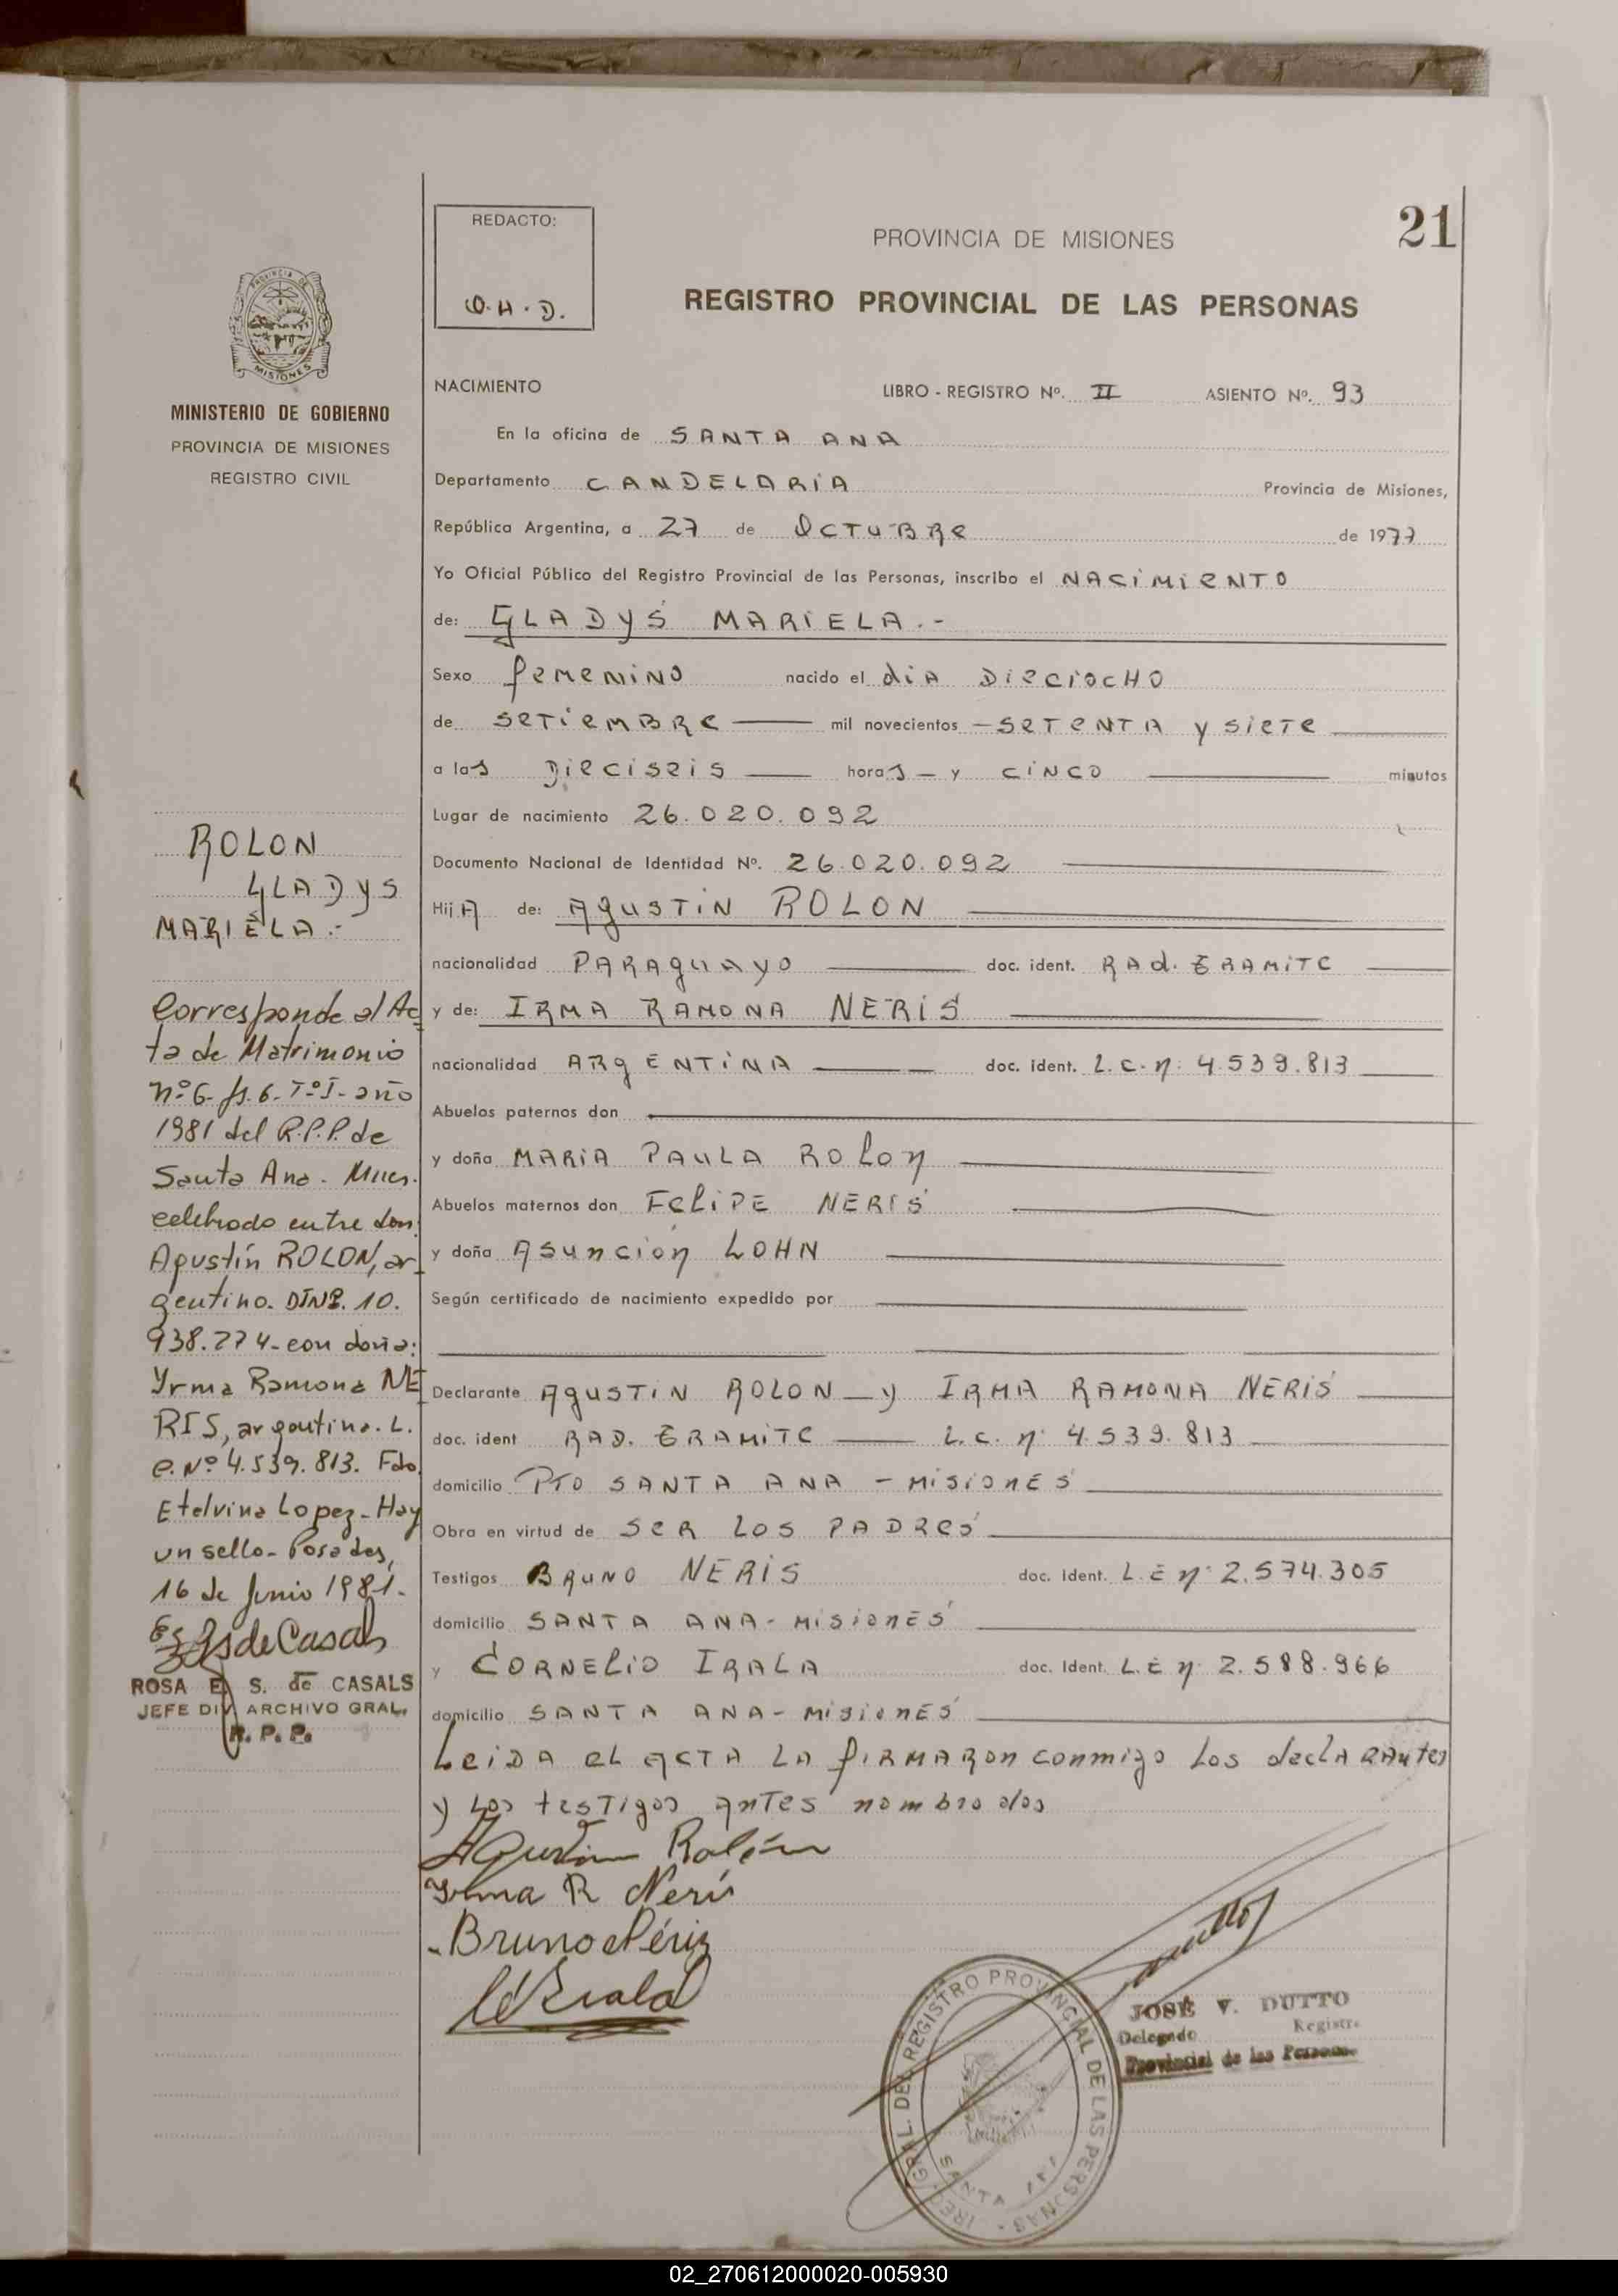 21
REDACTO:
O.H.D.
PROVINCIA DE MISIONES
REGISTRO PROVINCIAL DE LAS PERSONAS
MISIONES
MINISTERIO DE GOBIERNO
PROVINCIA DE MISIONES
REGISTRO CIVIL
ROLON
GLADYS
MARIELA.-
Corresponde al Ac
ta de Matrimonio
nº6-fs.6-TºI-año
1981 del R.P.P. de
Santa Ana. Mnes.
celebrado entre don:
Agustín ROLON, ar
gentino. DJNI. 10.
938.274-con doña:
Yrma Ramona NE
RIS, argentina. L.
C. Nº 4.539.813. Fdo.
Etelvina Lopez-Hay
un sello-Posadas,
16 de Junio 1981.-
ROSA E. S. de CASALS
JEFE DIV. ARCHIVO GRAL.
R. P. P.
NACIMIENTO LIBRO - REGISTRO Nº. II ASIENTO Nº. 93
En la oficina de SANTA ANA
Departamento CANDELARIA Provincia de Misiones,
República Argentina, a 27 de OCTUBRE de 1977
Yo Oficial Público del Registro Provincial de las Personas, inscribo el NACIMIENTO
de: GLADYS MARIELA.-
Sexo femenino nacido el dia DIECIOCHO
de SETIEMBRE mil novecientos - SETENTA y SIETE
a las DIECISEIS horas - y CINCO minutos
Lugar de nacimiento 26.020.092
Documento Nacional de Identidad Nº. 26.020.092
HijA de: AgusTiN ROLON
nacionalidad PARAguAyo doc. ident. RAd. TRAMITE
y de: IRMA RAMONA NERIS
nacionalidad ARGENTINA doc. ident. L.C.n: 4.539.813
Abuelos paternos don
y doña MARIA PAULA ROLON
Abuelos maternos don FELIPE NERIS
y doña Asuncion LOHN
Según certificado de nacimiento expedido por
Declarante AgusTiN ROLON y IRMA RAMONA NERIS
doc. ident RAD. TRAMITE L.C. n: 4.539.813
domicilio PTO SANTA ANA - MISIONES
Obra en virtud de SER LOS PADRES
Testigos BRUNO NERIS doc. Ident. L.E n: 2.574.305
domicilio SANTA ANA - MISIONES
y CORNELIO IRALA doc. Ident. L.E n: 2.588.966
domicilio SANTA ANA - MISIONES
Leida el acta la firmaron conmigo los declarantes
y los testigos antes nombrados
Agustin Rolón
Irma R Neris
Bruno Neriz
JOSÉ V. DUTTO
Delegado Registro
Provincial de las Personas
GRAL. DEL REGISTRO PROVINCIAL DE LAS PERSONAS
SANTA ANA
02_270612000020-005930